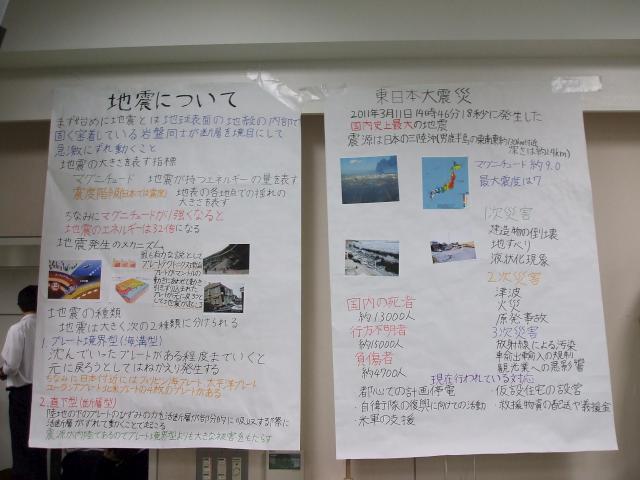 地震について
まず始めに地震とは地球表面の地殻の内部で
固く密着している岩盤同士が断層を境目にして
急激にずれ動くこと
地震の大きさを表す指標
マグニチュード 地震が持つエネルギーの量を表す
震度階級(日本では震度) 地表の各地点での揺れの
大きさを表す
ちなみにマグニチュードが1強くなると
地震のエネルギーは32倍になる
地震発生のメカニズム
最も有力な説として
プレートテクトニクス理論
プレートがマントルの
動きに合わせて動き
引きずり込まれた
プレートが元に戻ろう
として地震が起こる
地震の種類
地震は大きく次の2種類に分けられる
1.プレート境界型(海溝型)
沈んでいったプレートがある程度までいくと
元に戻ろうとしてはねかえり発生する
ちなみに日本付近にはフィリピン海プレート 太平洋プレート
ユーラシアプレート 北米プレートの4枚のプレートがある
2.直下型(断層型)
陸地の下のプレートのひずみの力を活断層が部分的に吸収する際に
活断層がずれて動くことで起こる
震源が内陸であるのでプレート境界型よりも大きな被害をもたらす
東日本大震災
2011年3月11日14時46分18秒に発生した
国内史上最大の地震
震源は日本の三陸沖(男鹿半島の東南東約130km付近
深さは約24km)
マグニチュード 約9.0
最大震度は7
1次災害
建造物の倒壊
地すべり
液状化現象
2次災害
津波
火災
原発事故
3次災害
放射線による汚染
車輸出輸入の規制
観光業への悪影響
国内の死者
約13000人
行方不明者
約15000人
負傷者
約4700人
現在行われている対応
都心での計画停電 仮設住宅の設営
・自衛隊の復興に向けての活動 ・救援物資の配送や義援金
米軍の支援